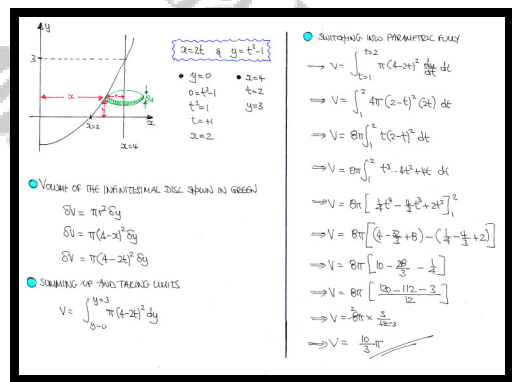 y
3
x = 2t & y = t² - 1
• y = 0
0 = t² - 1
t² = 1
t = +1
x = 2
• x = 4
t = 2
y = 3
x
r
δy
y
x = 2
x
x = 4
VOLUME OF THE INFINITESIMAL DISC SHOWN IN GREEN
δV = πr² δy
δV = π(4-x)² δy
δV = π(4-2t)² δy
SUMMING UP AND TAKING LIMITS
V = ∫_{y=0}^{y=3} π(4-2t)² dy
SWITCHING INTO PARAMETRIC FULLY
→ V = ∫_{t=1}^{t=2} π(4-2t)² dy/dt dt
⇒ V = ∫_1^2 4π(2-t)² (2t) dt
⇒ V = 8π ∫_1^2 t(2-t)² dt
⇒ V = 8π ∫_1^2 t³ - 4t² + 4t dt
⇒ V = 8π [ 1/4 t⁴ - 4/3 t³ + 2t² ]_1^2
⇒ V = 8π [ (4 - 32/3 + 8) - (1/4 - 4/3 + 2) ]
⇒ V = 8π [ 10 - 28/3 - 1/4 ]
⇒ V = 8π [ (120 - 112 - 3)/12 ]
⇒ V = 8π² × 5/12 3
⇒ V = 10/3 π